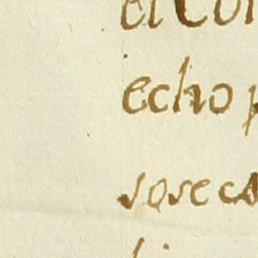 el Con
echo p
sosecs